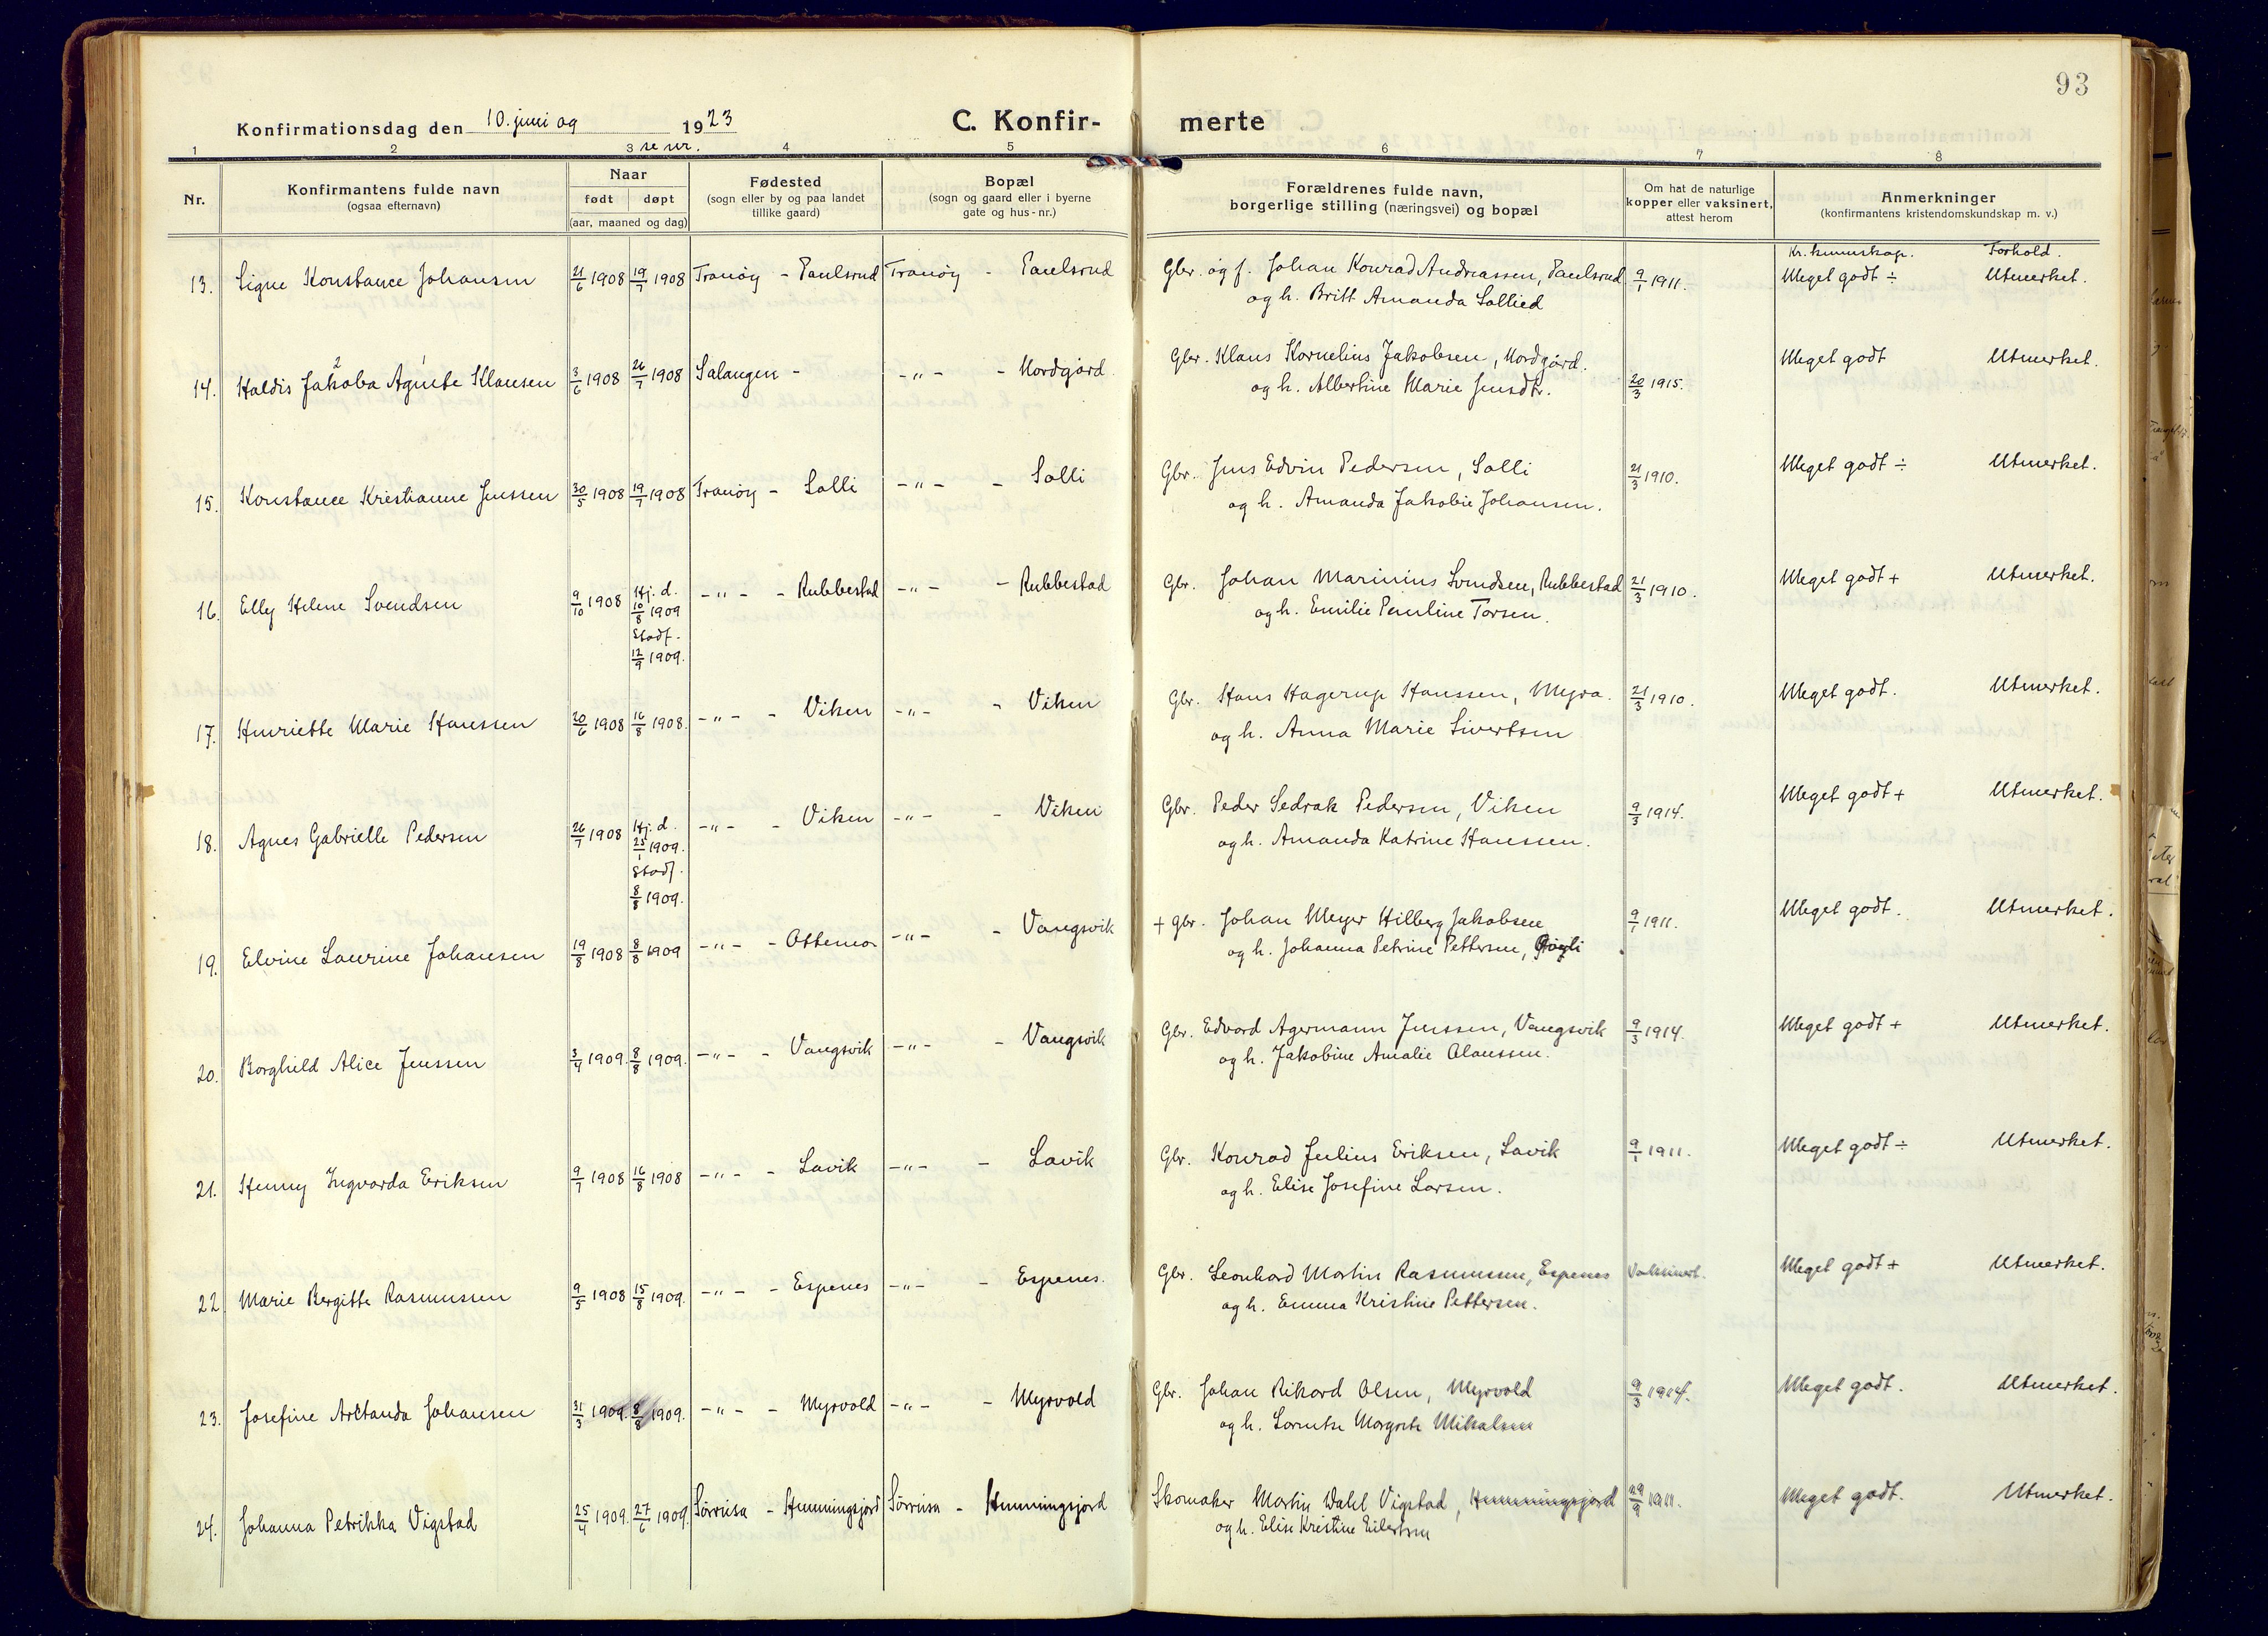 93
Konfirmationsdag den 10. juni og 1923
C. Konfir- merte
1 2 3 se nr. 4 5 6 7 8
Nr.
Konfirmantens fulde navn
(ogsaa efternavn)
Naar
født døpt
(aar, maaned og dag)
Fødested
(sogn eller by og paa landet
tillike gaard)
Bopæl
(sogn og gaard eller i byerne
gate og hus-nr.)
Forældrenes fulde navn,
borgerlige stilling (næringsvei) og bopæl
Om hat de naturlige
kopper eller vaksinert,
attest herom
Anmerkninger
(konfirmantens kristendomskundskap m. v.)
Kr. kunnskap. Forhold.
13. Signe Konstance Johansen 21/6 1908 19/7 1908 Tranöy - Paulsrud Tranöy - Paulsrud Gbr. og f. Johan Konrad Andreassen, Paulsrud 9/1 1911. Meget godt ÷ Utmerket.
og h. Britt Amanda Sollied
2 1
14. Haldis Jakoba Agnete Klausen 3/6 1908 26/7 1908 Salangen - -"- - Nordgård. Gbr. Klaus Kornelius Jakobsen, Nordgård. 20/3 1915. Meget godt Utmerket.
og h. Albertine Marie Jensdtr.
15. Konstance Kristianne Jenssen 30/5 1908 19/7 1908 Tranöy - Solli -"- - Solli Gbr. Jens Edvin Pedersen, Solli 21/3 1910. Meget godt ÷ Utmerket.
og h. Amanda Jakobie Johansen.
16. Elly Helene Svendsen 9/10 1908 Hj. d. 10/8 1909 -"- - Rubbestad -"- - Rubbestad Gbr. Johan Marinius Svendsen, Rubbestad 21/3 1910. Meget godt + Utmerket.
Stadf. og h. Emilie Pauline Torsen.
12/9 1909.
17. Henriette Marie Hanssen 20/6 1908 16/8 1908. -"- - Viken -"- - Viken Gbr. Hans Hagerup Hanssen, Myra. 21/3 1910. Meget godt. Utmerket.
og h. Anna Marie Sivertsen
18. Agnes Gabrielle Pedersen 26/7 1908 Hj. d. 25/1 1909. -"- - Viken -"- - Viken Gbr. Peder Sedrak Pedersen, Viken 9/3 1914. Meget godt + Utmerket.
Stadf. og h. Amanda Katrine Hanssen.
8/8 1909.
19. Elvine Laurine Johansen 19/8 1908 8/8 1909 -"- - Ottemo -"- - Vangsvik + Gbr. Johan Meyer Hilberg Jakobsen 9/1 1911. Meget godt. Utmerket.
og h. Johanna Petrine Pettersen,
20. Borghild Alice Jenssen 3/4 1909. 8/8 1909. -"- - Vangsvik -"- - Vangsvik Gbr. Edvard Agermann Jenssen, Vangsvik 9/3 1914. Meget godt + Utmerket.
og h. Jakobine Amalie Olaussen.
21. Henny Ingvarda Eriksen 9/7 1908 16/8 1908 -"- - Lavik -"- - Lavik Gbr. Konrad Julius Eriksen, Lavik 9/1 1911. Meget godt ÷ Utmerket.
og h. Elise Josefine Larsen.
22 Marie Bergitte Rasmussen 9/5 1908 15/8 1909. -"- - Espenes -"- - Espenes. Gbr. Leonhard Martin Rasmussen, Espenes Vaksinert. Meget godt + Utmerket.
og h. Emma Kristine Pettersen.
23. Josefine Arktanda Johansen 31/3 1909. 8/8 1909. -"- - Myrvold -"- - Myrvold Gbr. Johan Rikard Olsen, Myrvold 9/3 1914. Meget godt. Utmerket.
og h. Lorentse Margrete Mikalsen
24. Johanna Petrikka Vigstad 25/4 1909. 27/6 1909. Sørreisa - Hemmingsjord Sørreisa - Hemmingsjord Skomaker Martin Dahl Vigstad, Hemmingsjord 29/9 1911. Meget godt. Utmerket.
og h. Elise Kristine Eilertsen